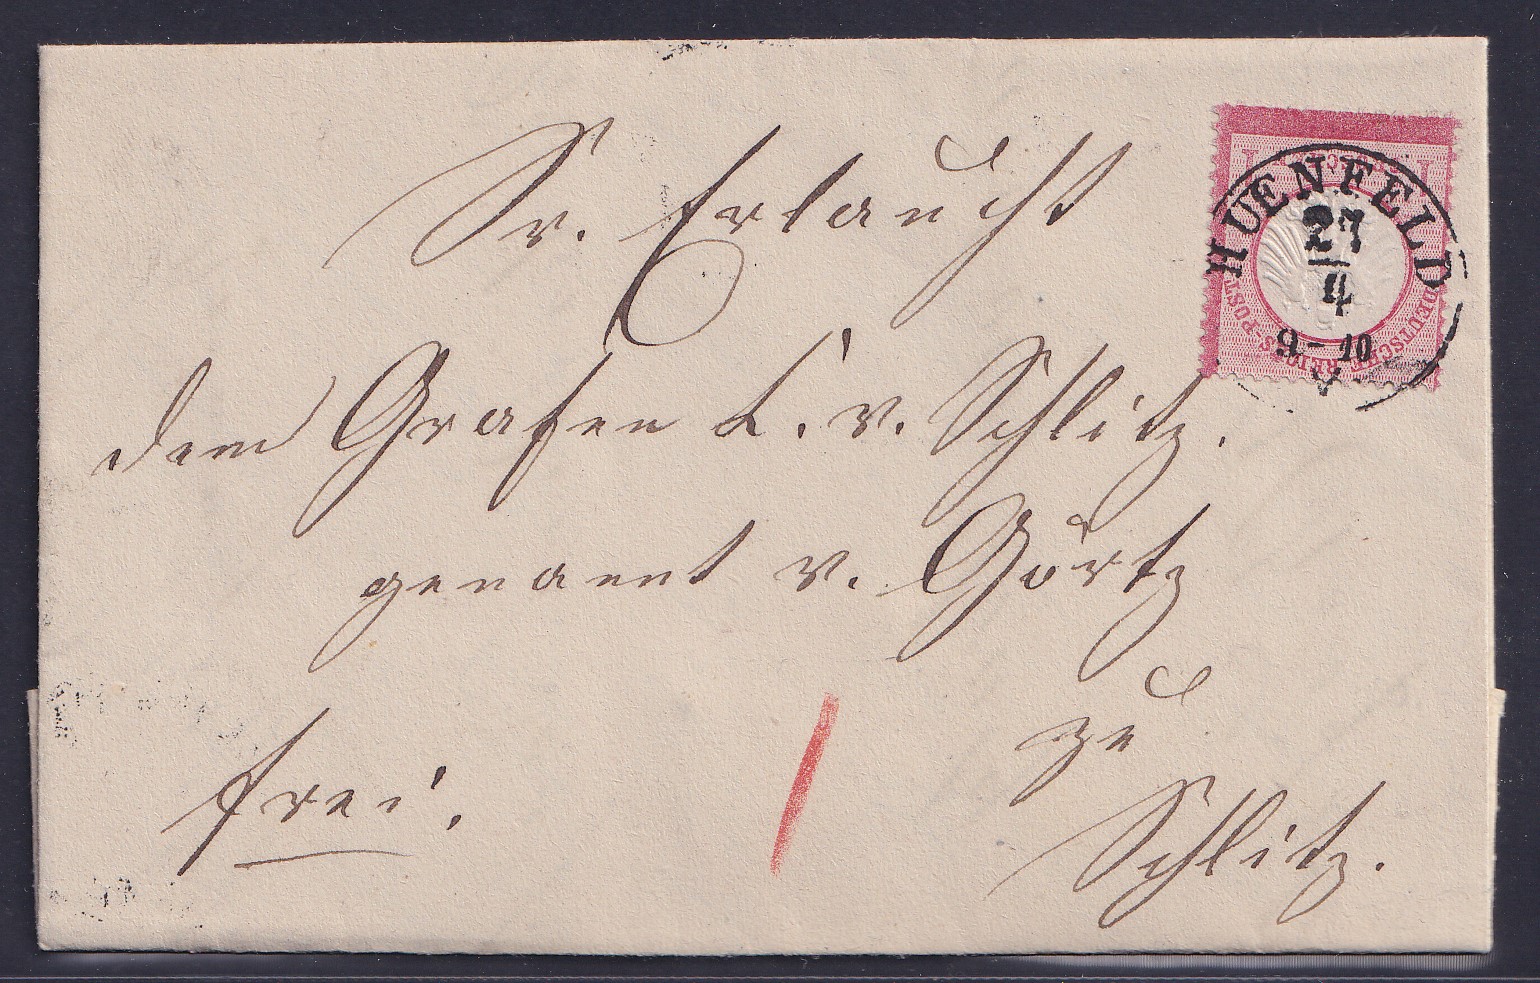 Sr. Erlaucht
dem Grafen C. v. Schlitz.
genannt v. Görtz
zu
Schlitz.
frei.
HUENFELD
27
4
9-10
DEUTSCHE REICHS-POST